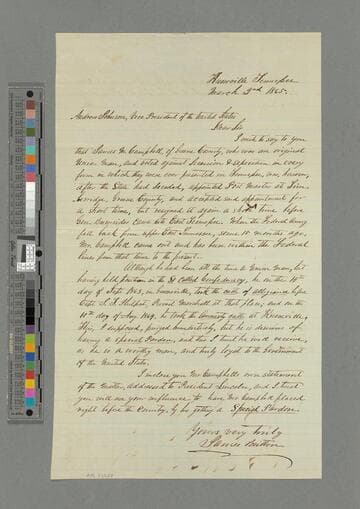 Knoxville Tennessee
March 2nd 1865.
Andrew Johnson, Vice President of the United States
Dear Sir
I wish to say to you
that James M. Campbell, of Greene County, who was an original
Union man, and voted against Secession & Separation in every
form in which they were ever presented in Tennessee, was, however,
after the State had Seceded, appointed Post Master at
Greene County, and accepted said appointment for
a short time, but resigned it again a short time before
Gen. Burnside came into East Tennessee. When the Federal army
fell back from upper East Tennessee, some 10 months ago,
Mr. Campbell came out and has been within the Federal
lines from that time to the present.
Although he had been all the time a Union man, but
having held position in the So Called Confederacy, he on the
day of 1863, in Greeneville, took the oath of allegiance before
Capt. Provost Marshall at that place, and on the
10th day of 1864, he took the Amnesty oath at Knoxville.
This, I supposed, purged him entirely, but he is desirous of
having a special Pardon, and this I trust he will receive,
as he is a worthy man, and truly loyal to the Government
of the United States.
I enclose you Mr. Campbell's own statement
of the matter, addressed to President Lincoln, and I trust
you will use your influence to have Mr. Campbell placed
right before the Country, by his getting a Special Pardon.
Yours very truly
James Britton